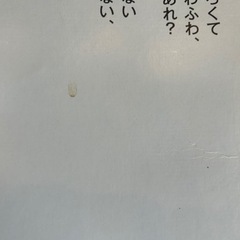 らくて
わふわ、
あれ？
ない
ない、